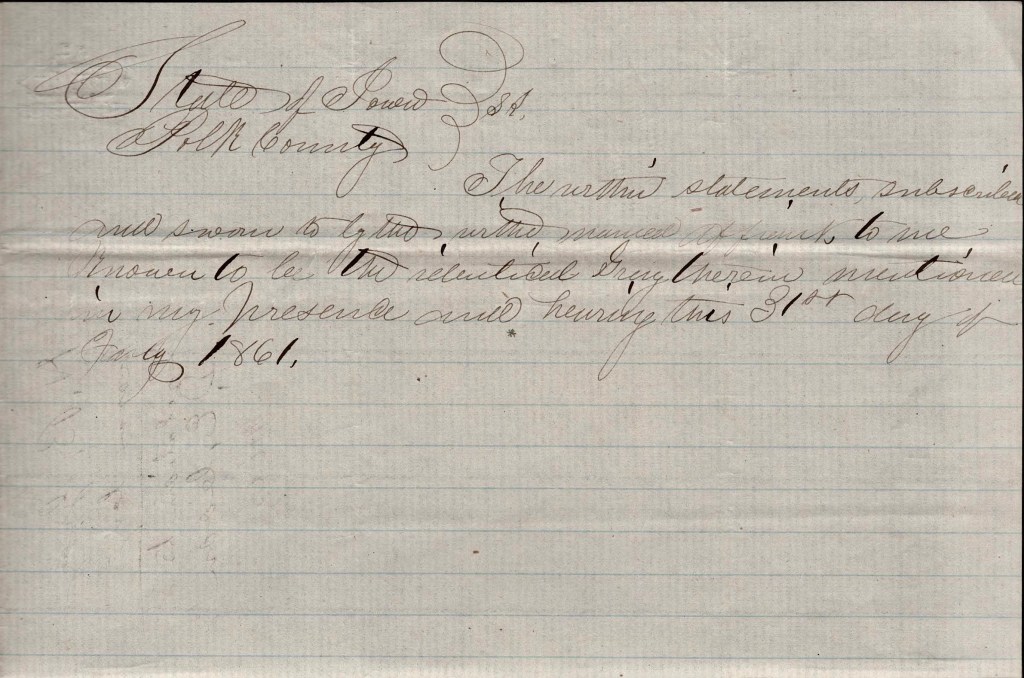 State of Iowa } ss.
Polk County
The within statements, subscribed
and sworn to by the within named Affiant, to me
Known to be the identical Gray therein mentioned
in my presence and hearing this 31st day of
July 1861.